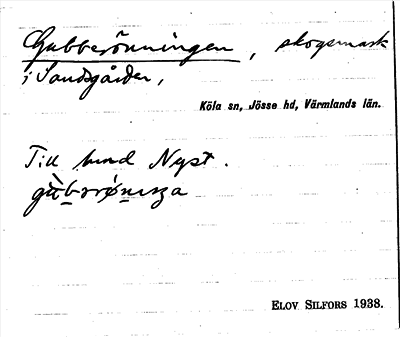 Gubberönningen, skogsmark
i Sandgården,
Köla sn, Jösse hd, Värmlands län.
Till hmd Nyst.
ELOV SILFORS 1938.